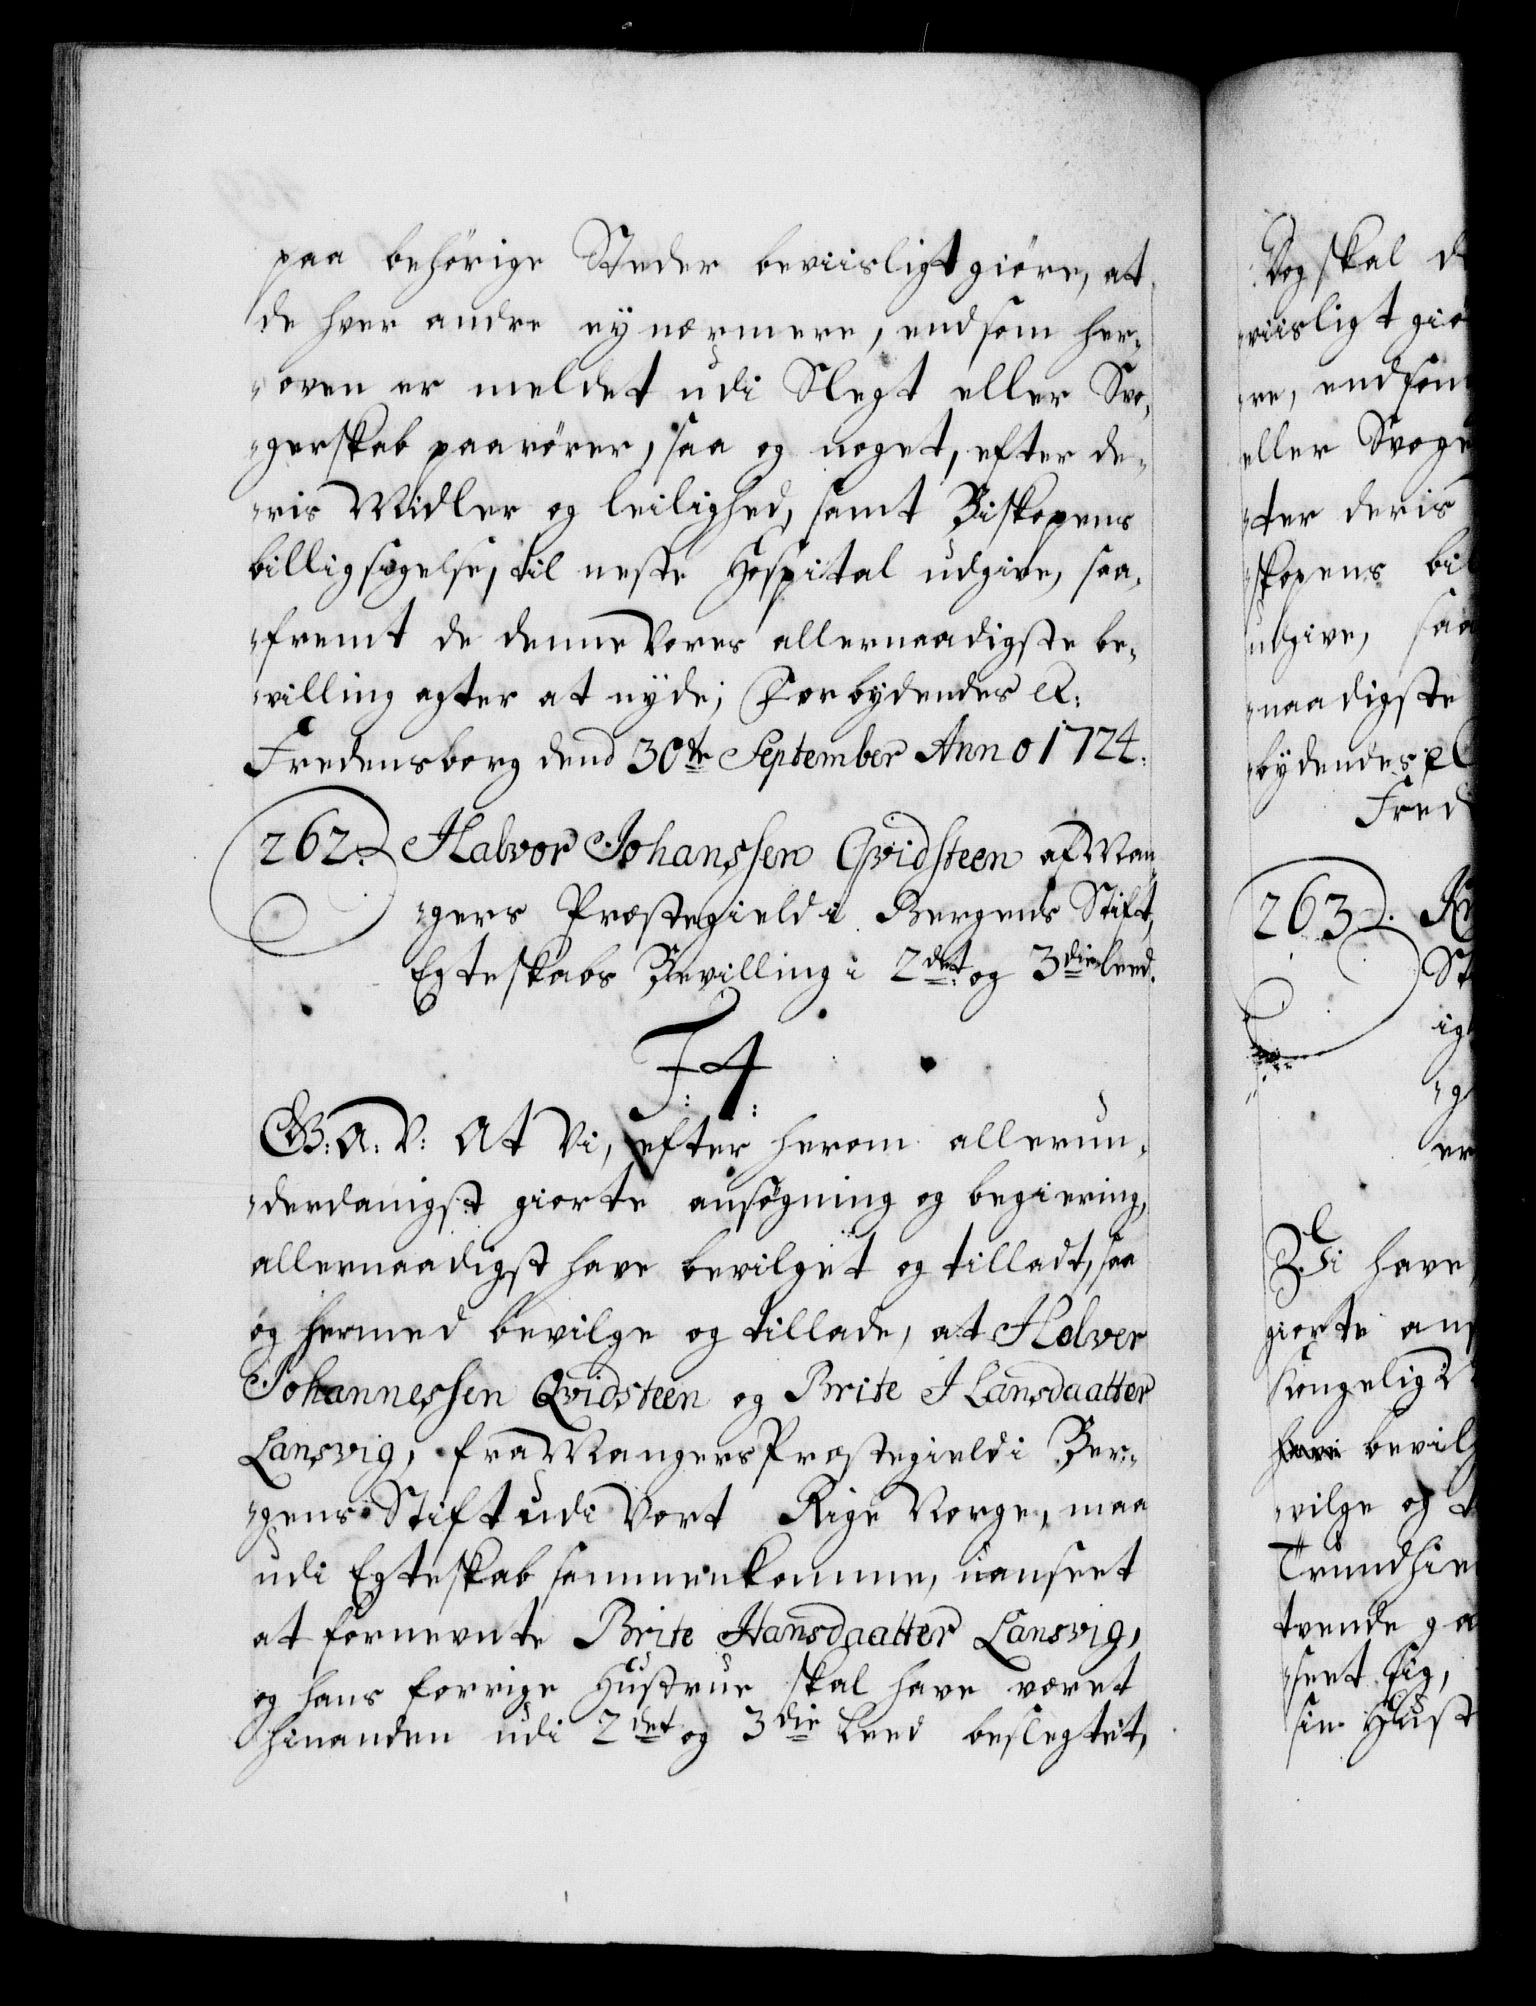 paa behörige Steder beviisligt giöre, at
de hver andre ey nærmere, end som her-
oven er meldet udi Slegt eller Svo-
gerskab paarörer, saa og noget, efter de-
ris Midler og leilighed, samt Biskopens
billigsigelse, til neste Hospital udgive, saa-
fremt de denne Vores allernaadigste be-
villing agter at nyde; Forbydendes &:
Fredensborg dend 30te September Anno 1724.
262. Halvor Johanssen Qvidsteen af Man-
gers Præstegield i Bergens Stift,
Egteskabs Bevilling i 2det og 3die Leed.
F: 4:
G: A: V: At Vi, efter herom allerun-
derdanigst giorte ansögning og begiering,
allernaadigst have bevilget og tilladt, saa
og hermed bevilge og tillade, at Halver
Johannessen Qvidsteen og Brite Hansdaatter
Lansvig, fra Mangers Præstegield i Ber-
gens Stift udi Vort Rige Norge, maa
udi Egteskab sammenkomme, uanseet
at fornevnte Brite Hansdaatter Lansvig,
og hans forrige Hustrue skal have været
hinanden udi 2det og 3die Leed beslegtet,
Dog skal d
viisligt giö
re, end som
eller Svoge
ter deris
skopens bil
udgive, saa
naadigste
bydendes &
Fred
263.
St
ig
g
er
Vi have
giorte ans
Kongelig
have bevilg
vilge og t
Trundhie
tvende g
seet sig,
sin Hust